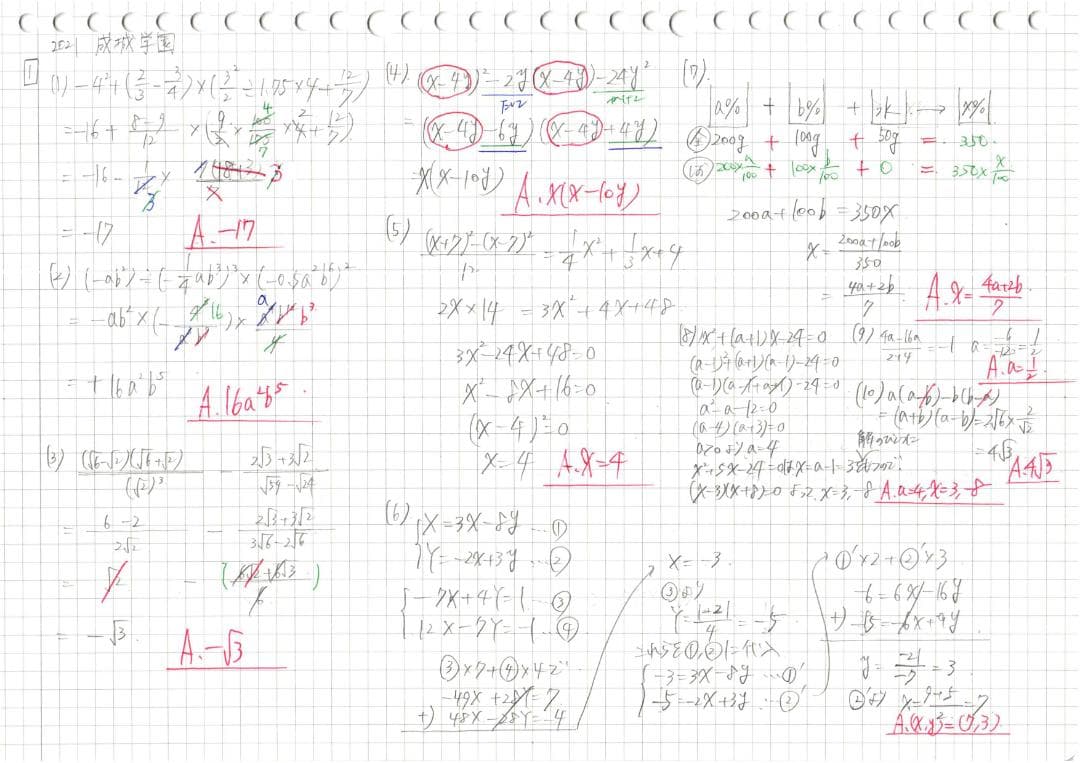 2021 成城学園
1
(1) -4²+(2/3-3/4)×(3²/2÷1.75×4+12/7)
=-16+(8-9)/12×(9/2×100/175×4+12/7)
4
7
2
=-16-1/12×
3
3
=-17
A.-17
(2) (-ab²)÷(-1/4ab³)³×(-0.5a²b⁶)²
=-ab²×(-
16
)×
a
b³
4
=+16a²b⁵
A.16a²b⁵
(3) (√6-√2)(√6+√2)/(√2)³ - (2√3+3√2)/(√54-√24)
= (6-2)/2√2 - (2√3+3√2)/(3√6-2√6)
= √2 - (6√2+6√3)/6
= -√3
A.-√3
(4) (x-4y)²-2y(x-4y)-24y²
たして かけて
=(x-4y-6y)(x-4y+4y)
=x(x-10y)
A.x(x-10y)
(5) ((x+7)²-(x-7)²)/12=1/4x²+1/3x+4
2x×14=3x²+4x+48
3x²-24x+48=0
x²-8x+16=0
(x-4)²=0
x=4 A.x=4
(6) X=3x-8y…①
Y=-2x+3y…②
-7X+4Y=1…③
12X-7Y=-1…④
③×7+④×4で
-49X+28Y=7
+) 48X-28Y=-4
X=-3
③より
Y=(1+21)/4=-5
これらを①,②に代入
-3=3x-8y…①′
-5=-2x+3y…②′
①′×2+②′×3
-6=6x-16y
+) -15=-6x+9y
y=-21/-7=3
②′より x=(9+5)/2=7
A.(x,y)=(7,3)
(7)
a% + b% + 水 → x%
全 200g + 100g + 50g = 350
200×a/100 + 100×b/100 + 0 = 350×x/100
200a+100b=350x
x=(200a+100b)/350
=(4a+2b)/7
A.x=(4a+2b)/7
(8) x²+(a+1)x-24=0
(a-1)²+(a+1)(a-1)-24=0
(a-1)(a-1+a+1)-24=0
a²-a-12=0
(a-4)(a+3)=0
a>0よりa=4
x²+5x-24=0はx=a-1=3を
解の1つに
(x-3)(x+8)=0よって,x=3,-8 A.a=4,x=3,-8
(9) (4a-16a)/(2+4)=-1 a=-6/-12=1/2
A.a=1/2
(10) a(a-b)-b(b-a)
=(a+b)(a-b)=2√6×2/√2
=4√3
A.4√3